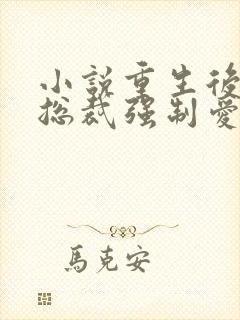 小說重生後
總裁强制愛
馬克安